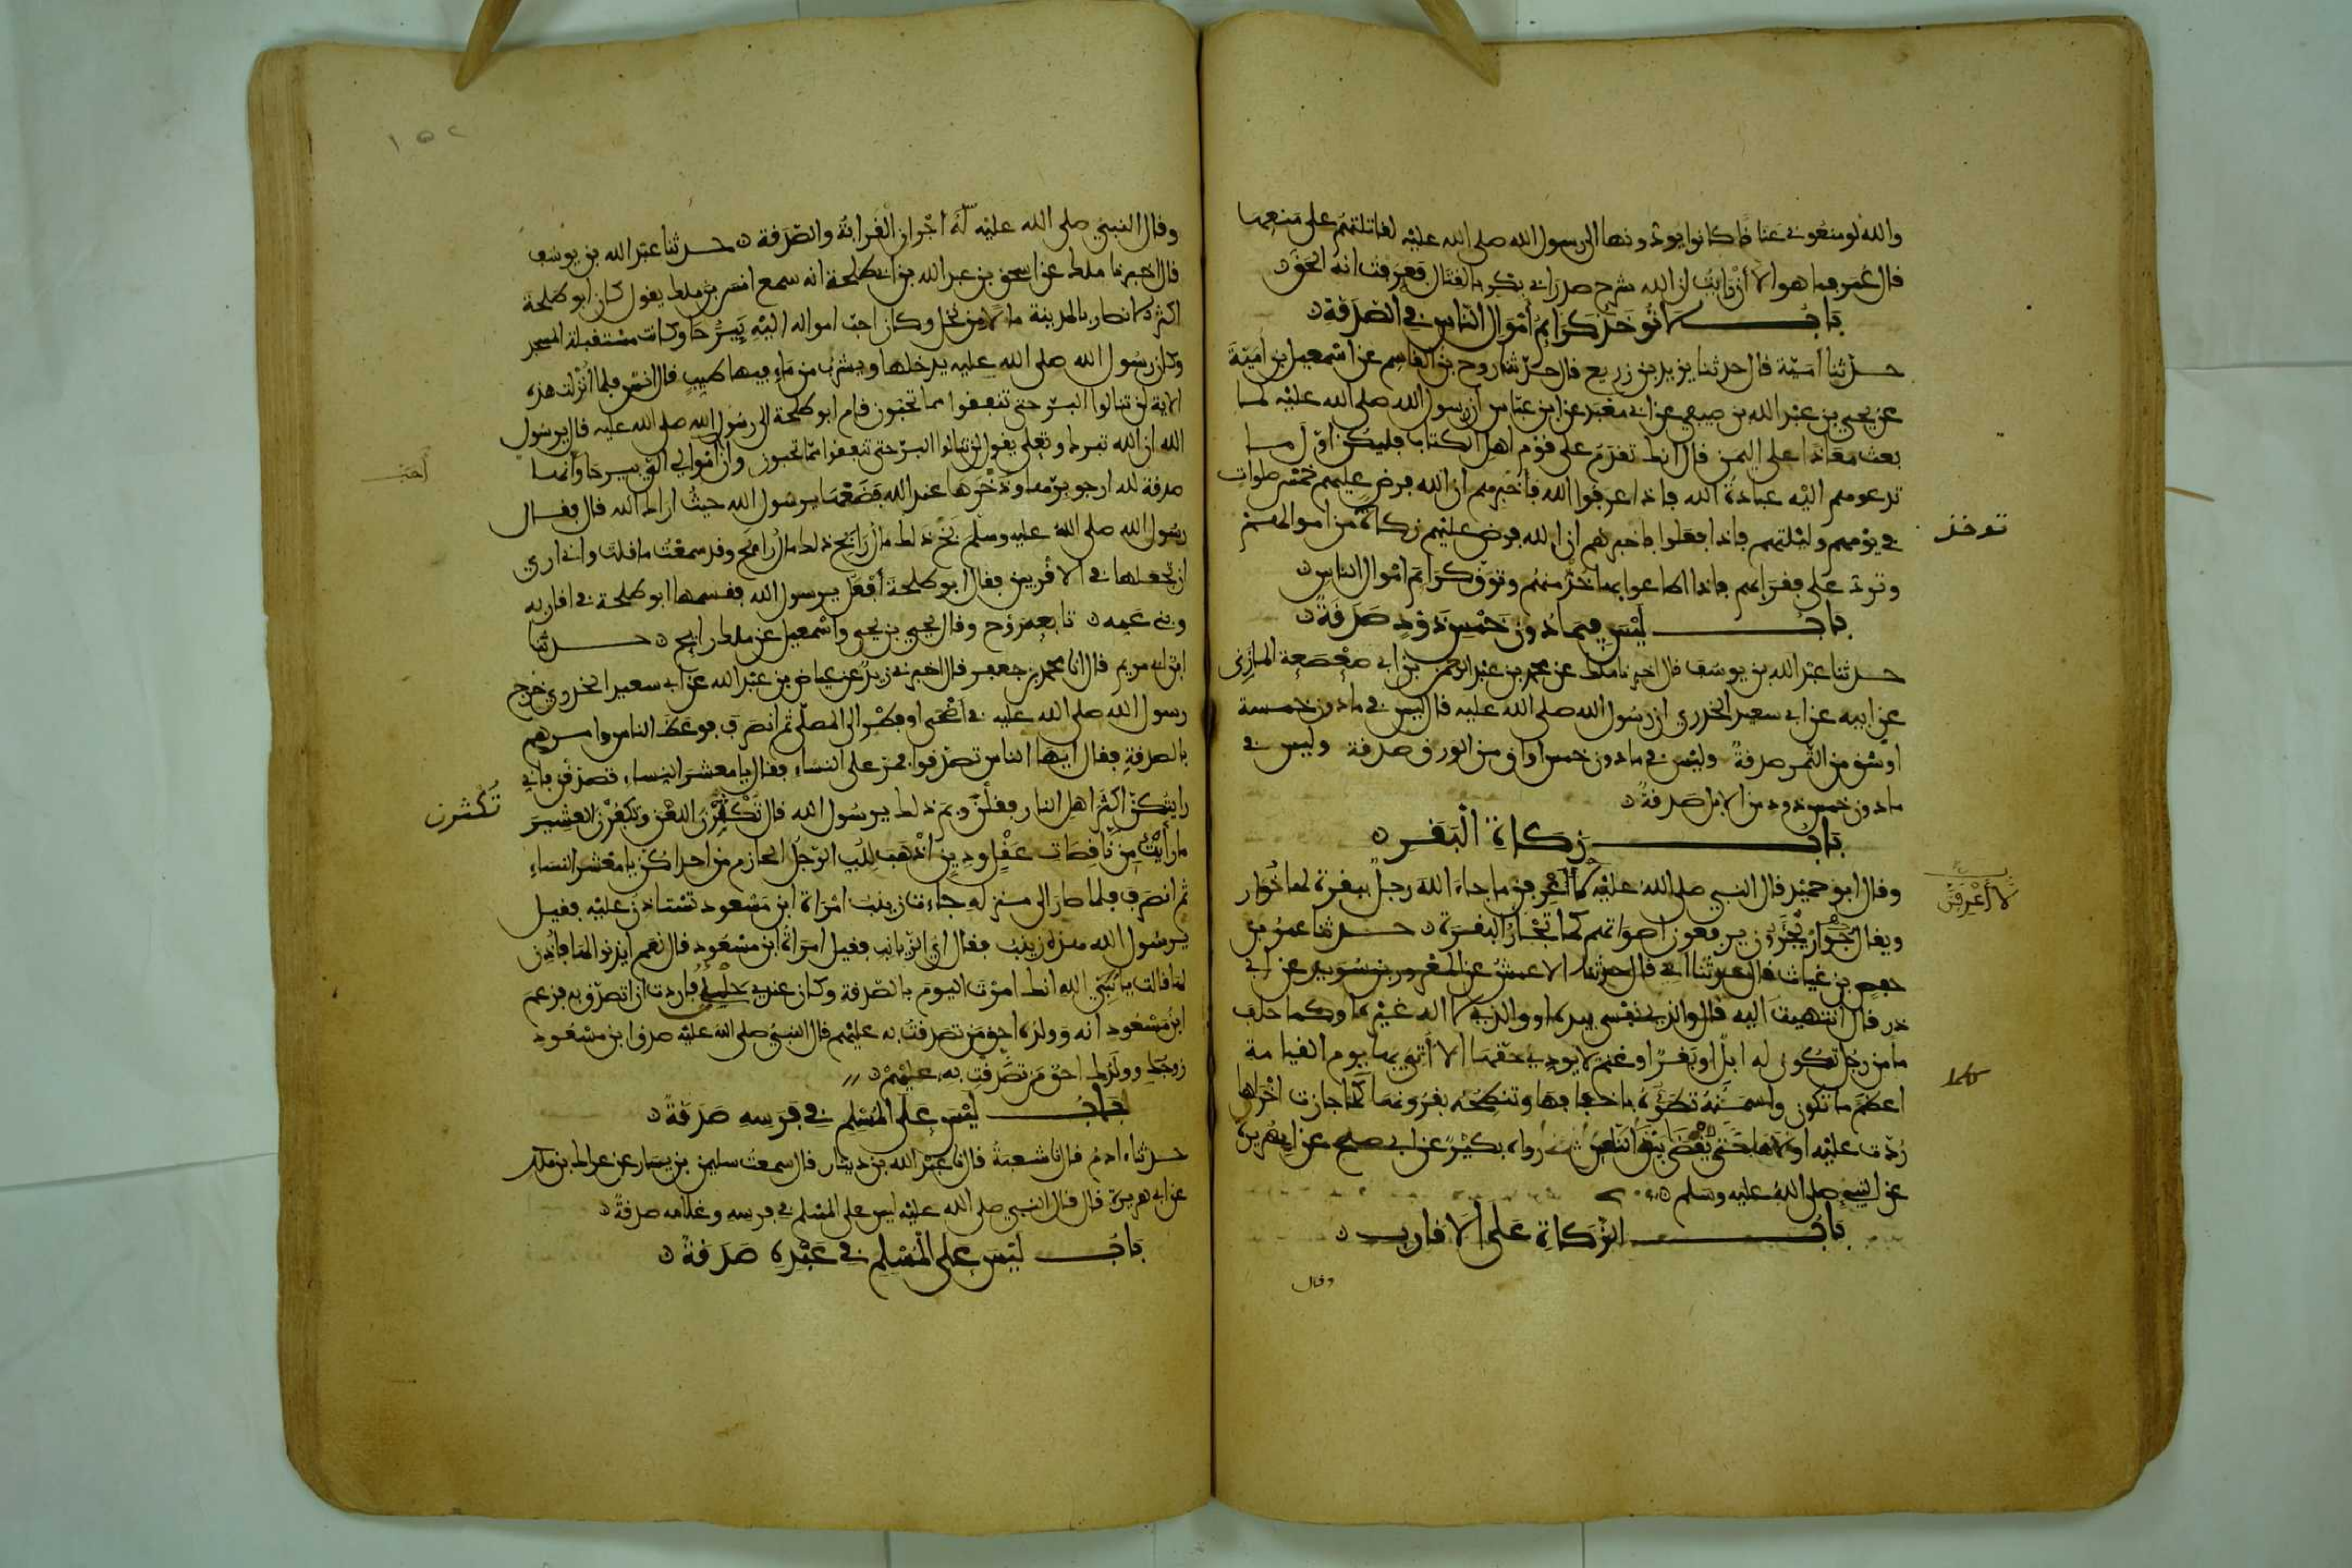 والله لو منعوني عناقا كانوا يودونها الى رسول الله صلى الله عليه لقاتلتهم على منعها
قال عمر فما هو الا أن رايت ان الله شرح صدر ابي بكر بالقتال فعرفت انه الحق
باب لا توخذ كرايم أموال الناس في الصدقة
حدثنا امية قال حدثنا يزيد بن زريع قال حدثنا روح بن القاسم عن اسمعيل بن امية
عن يحيى بن عبد الله بن صيفي عن ابي معبد عن ابن عباس أن رسول الله صلى الله عليه لما
بعث معاذا على اليمن قال انك تقدم على قوم اهل الكتاب فليكن اول ما
تدعوهم اليه عبادة الله فاذا عرفوا الله فأخبرهم ان الله فرض عليهم خمس صلوات
في يومهم وليلتهم فاذا فعلوا فاخبرهم ان الله فرض عليهم زكاة من اموالهم
توخذ
وترد على فقرايهم فاذا اطاعوا بها فخذ منهم وتوق كرايم اموال الناس
باب ليس فيما دون خمس ذود صدقة
حدثنا عبد الله بن يوسف قال اخبرنا ملك عن محمد بن عبد الرحمن بن ابي صعصعة المازني
عن ابيه عن ابي سعيد الخدري ان رسول الله صلى الله عليه قال ليس في ما دون خمسة
اوسق من التمر صدقة وليس في ما دون خمس اواق من الورق صدقة وليس في
ما دون خمس ذود من الابل صدقة
باب زكاة البقر
وقال ابو حميد قال النبي صلى الله عليه لأعرفن ما جاء الله رجل ببقرة لها خوار
لا أعرفن
ويقال جؤار تجئرون يرفعون اصواتهم كما تجأر البقرة حدثنا عمر بن
حفص بن غياث قال حدثنا ابي قال حدثنا الاعمش عن المعرور بن سويد عن ابي
ذر قال انتهيت اليه قال والذي نفسي بيده او والذي لا اله غيره او كما حلف
ما من رجل تكون له ابل او بقر او غنم لا يودي حقها الا أتي بها يوم القيامة
اعظم ما تكون واسمنه تطؤه باخفافها وتنطحه بقرونها كلما جازت اخراها
كلما
ردت عليه اولاها حتى يقضى بين الناس رواه بكير عن ابي صلح عن ابي هريرة
عن النبي صلى الله عليه وسلم
باب الزكاة على الاقارب
وقال
١٥٢
وقال النبي صلى الله عليه له أجران القرابة والصدقة حدثنا عبد الله بن يوسف
قال اخبرنا ملك عن اسحق بن عبد الله بن ابي طلحة انه سمع انس بن ملك يقول كان ابو طلحة
اكثر الانصار بالمدينة مالا من نخل وكان احب امواله اليه بيرحا وكانت مستقبلة المسجد
وكان رسول الله صلى الله عليه يدخلها ويشرب من ماء فيها طيب قال انس فلما أنزلت هذه
الاية لن تنالوا البر حتى تنفقوا مما تحبون قام ابو طلحة الى رسول الله صلى الله عليه فقال يرسول
الله ان الله تبرك وتعلى يقول لن تنالوا البر حتى تنفقوا مما تحبون وان اموالي الي بيرحا وانها
أحب
صدقة لله ارجو برها وذخرها عند الله فضعها يرسول الله حيث اراك الله قال فقال
رسول الله صلى الله عليه وسلم بخ ذلك مال رابح ذلك مال رابح وقد سمعت ما قلت واني ارى
ان تجعلها في الاقربين فقال ابو طلحة أفعل يرسول الله فقسمها ابو طلحة في اقاربه
وبني عمه تابعه روح وقال يحيى بن يحيى واسمعيل عن ملك رايح حدثنا
ابن ابي مريم قال انا محمد بن جعفر قال اخبرني زيد عن عياض بن عبد الله عن ابي سعيد الخدري خرج
رسول الله صلى الله عليه في اضحى او فطر الى المصلى ثم انصرف فوعظ الناس وامرهم
بالصدقة فقال ايها الناس تصدقوا فمر على النساء فقال يا معشر النساء تصدقن فاني
رايتكن اكثر اهل النار فقلن وبم ذلك يرسول الله قال تكثرن اللعن وتكفرن العشير
تكثرن
ما رأيت من ناقصات عقل ودين اذهب للب الرجل الحازم من احداكن يا معشر النساء
ثم انصرف فلما صار الى منزله جاءت زينب امراة ابن مسعود تستاذن عليه فقيل
يرسول الله هذه زينب فقال اي الزيانب فقيل امراة ابن مسعود قال نعم ايذنوا لها فأذن
لها قالت يا نبي الله انك امرت اليوم بالصدقة وكان عندي حلي فاردت ان اتصدق به فزعم
ابن مسعود انه وولده احق من تصدقت به عليهم قال النبي صلى الله عليه صدق ابن مسعود
زوجك وولدك احق من تصدقت به عليهم
باب ليس على المسلم في فرسه صدقة
حدثنا ءادم قال نا شعبة قال نا عبد الله بن دينار قال سمعت سليمن بن يسار عن عراك بن ملك
عن ابي هريرة قال قال النبي صلى الله عليه ليس على المسلم في فرسه وغلامه صدقة
باب ليس على المسلم في عبده صدقة